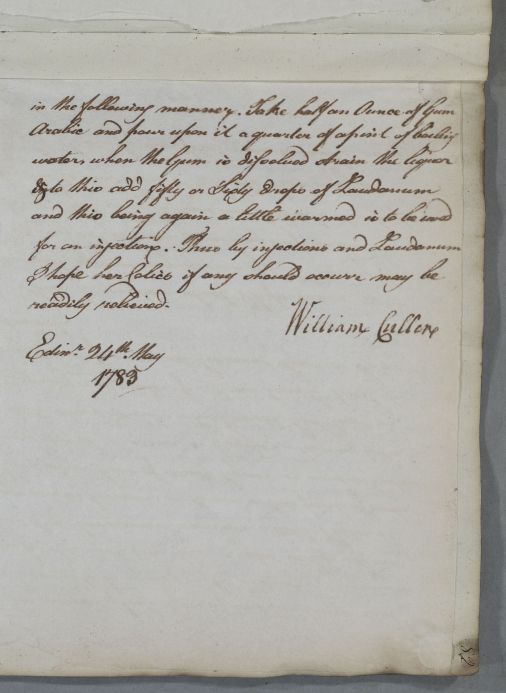 in the following manner. Take half an Ounce of Gum
Arabic and pour upon it a quarter of a pint of boiling
water, when the Gum is dissolved strain the liquor
& to this add fifty or Sixty drops of Laudanum
and this being again a little warmed is to be used
for an injection. Thus by injections and Laudanum
I hope her Colics if any should occurr may be
readily relieved.
William Cullen
Edinr. 24th. May
1783